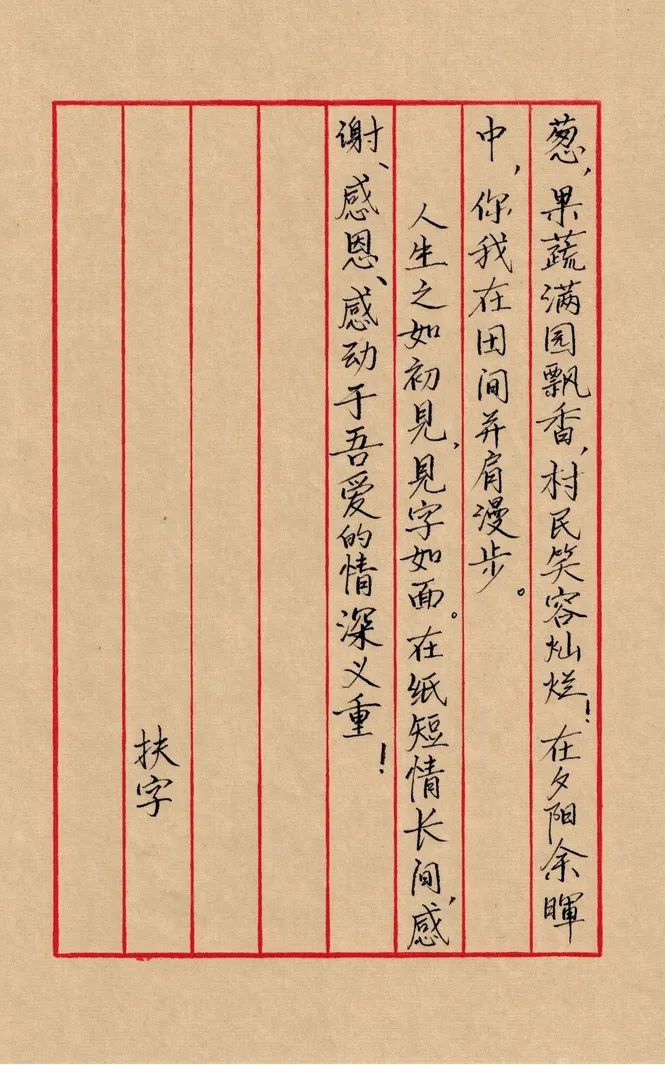 葱，果蔬满园飘香，村民笑容灿烂！在夕阳余暉
中，你我在田间并肩漫步。
人生之如初見，見字如面。在纸短情长间，感
谢、感恩、感动于吾爱的情深义重！
扶字